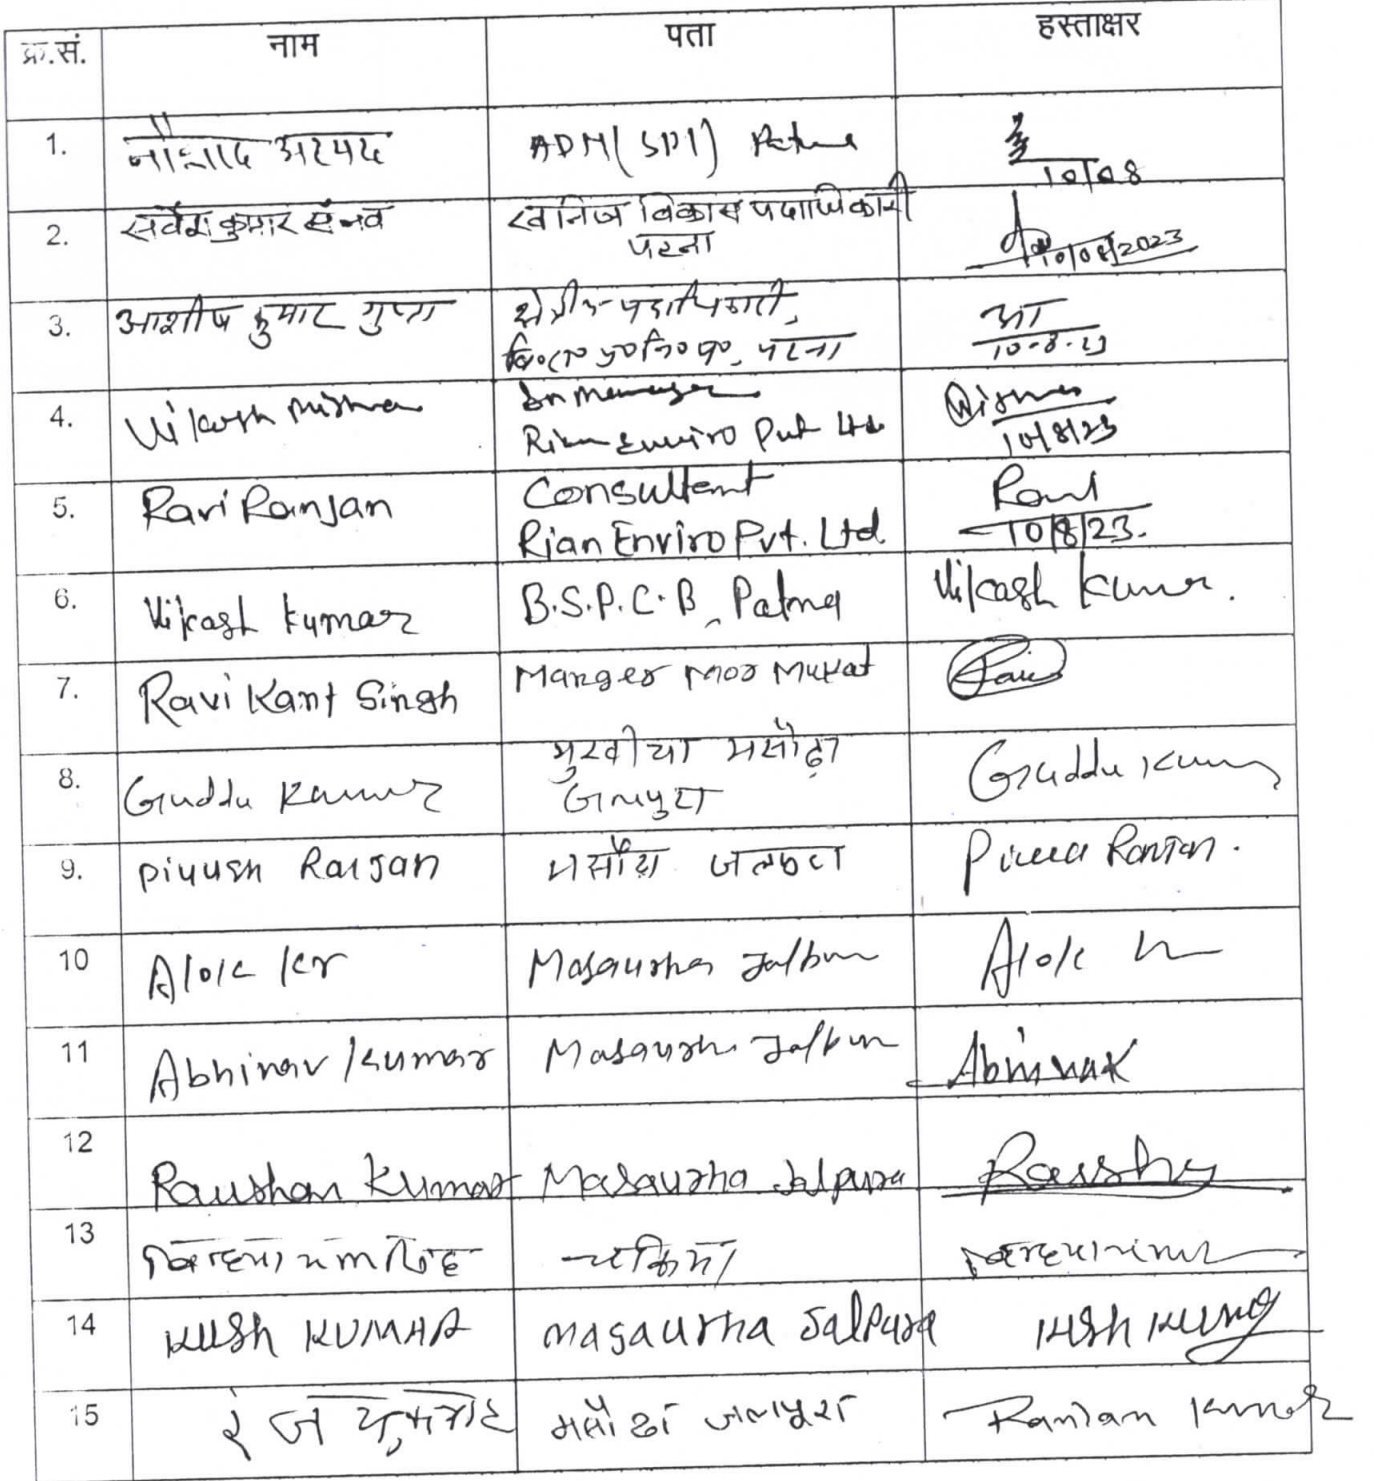 क्र.सं. नाम पता हस्ताक्षर
1. नौशाद अहमद ADM (SPl) Patna 10/08
2. सर्वेश कुमार संभव खनिज विकास पदाधिकारी
पटना 10/08/2023
3. आशीष कुमार गुप्ता क्षेत्रीय पदाधिकारी, आ
पटना 10-8-23
4. Vikash Mishra Sr Manager
Rian Enviro Pvt Ltd 10/8/23
5. Ravi Ranjan Consultent Ravi
Rian Enviro Pvt. Ltd. 10/8/23.
6. Vikash Kumar B.S.P.C.B, Patna Vikash Kumar.
7. Ravi Kant Singh Manger Mor Mukat Ravi
8. Guddu Kumar मुखीया मसौढ़ा Guddu Kumar
जलपुरा
9. Piyush Ranjan मसौढ़ा Ranjan.
10 Alok Kr Masaurha Jalpura Alok Kr
11 Abhinav Kumar Masaurha Jalpura Abhinav
12 Raushan Kumar Masaurha Jalpura Raushan
13
14 KUSH KUMAR Masaurha Jalpura KUSH KUMAR
15 मसौढा जलपुरा Ranjan Kumar